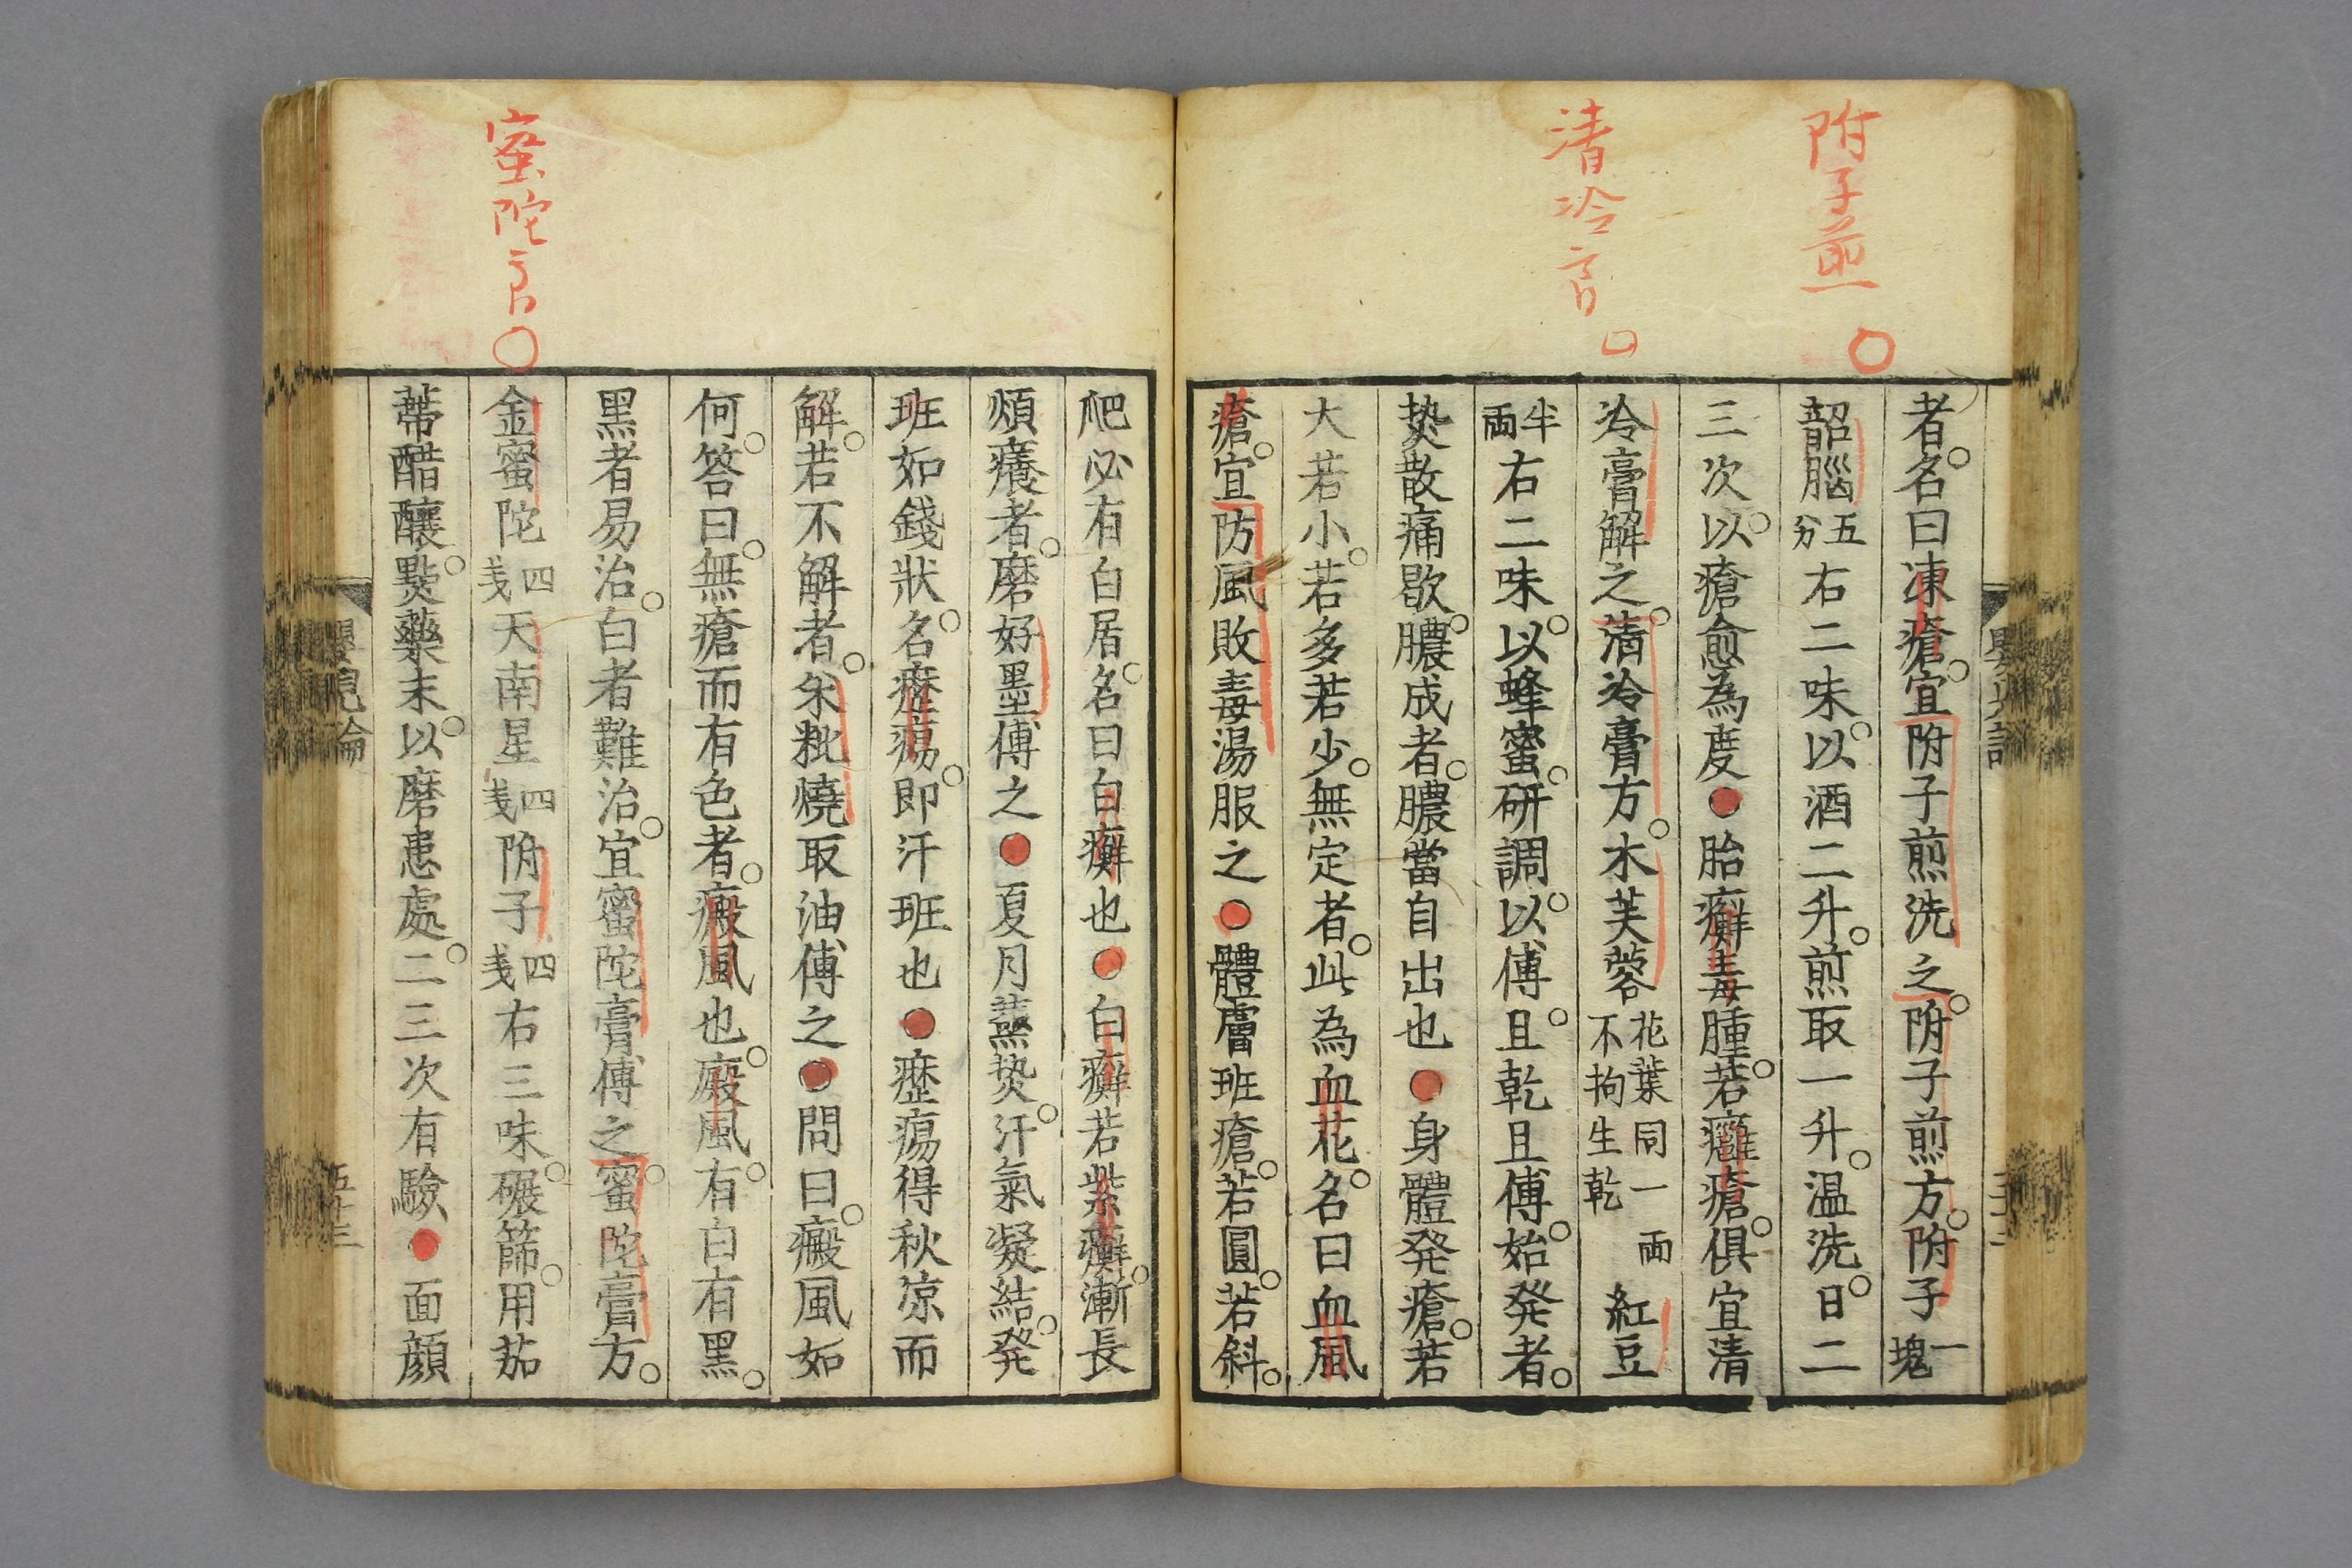 附子煎
清冷膏
者名曰凍瘡宜附子煎洗之附子煎方附子一塊
韶腦五分右二味以酒二升煎取一升温洗日二
三次以瘡愈為度●胎癬毒腫若癰瘡俱宜清
冷膏解之清冷膏方水芙蓉花葉同一両不拘生乾紅豆
半両右二味以蜂蜜研調以傅且乾且傅始発者
𤍠散痛歇膿成者膿當自出也●身體発瘡若
大若小若多若少無定者此為血花名曰血風
瘡宜防風敗毒湯服之●體膚班瘡若圓若斜
密陀膏
爬必有白屑名曰白癬也●白癬若紫癬漸長
煩癢者磨好墨傅之●夏月蒸𤍠汗氣凝結発
班如錢狀名癧瘍即汗班也●癧瘍得秋凉而
解若不解者柴粃燒取油傅之●問曰癜風如
何答曰無瘡而有色者癜風也癜風有白有黑
黑者易治白者難治宜蜜陀膏傅之蜜陀膏方
金蜜陀四戔天南星四戔附子四戔右三味碾篩用茄
蒂醋釀㸃藥末以磨患處二三次有驗●面顔